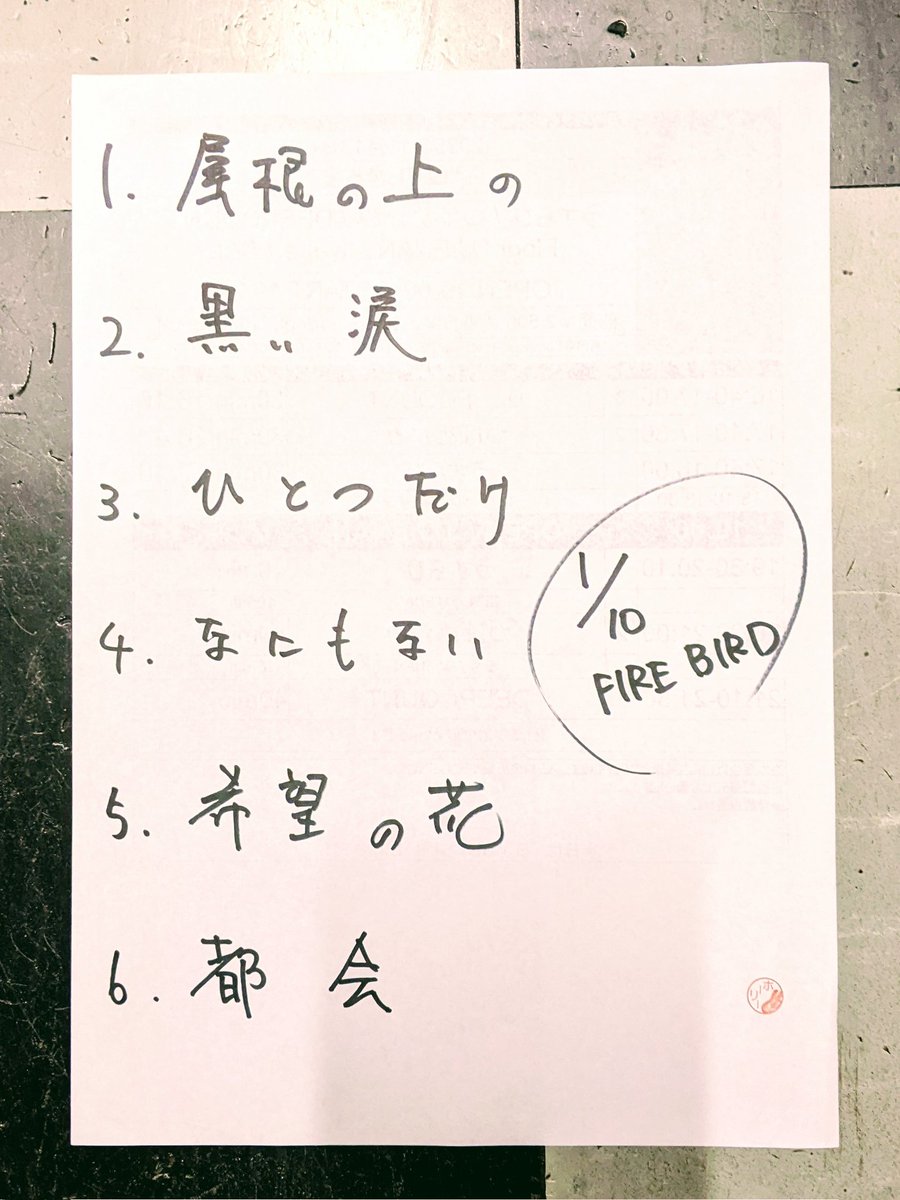 1. 屋根の上の
2. 黒い涙
3. ひとつだけ
4. なにもない
1/10
FIRE BIRD
5. 希望の花
6. 都会
ホーリー